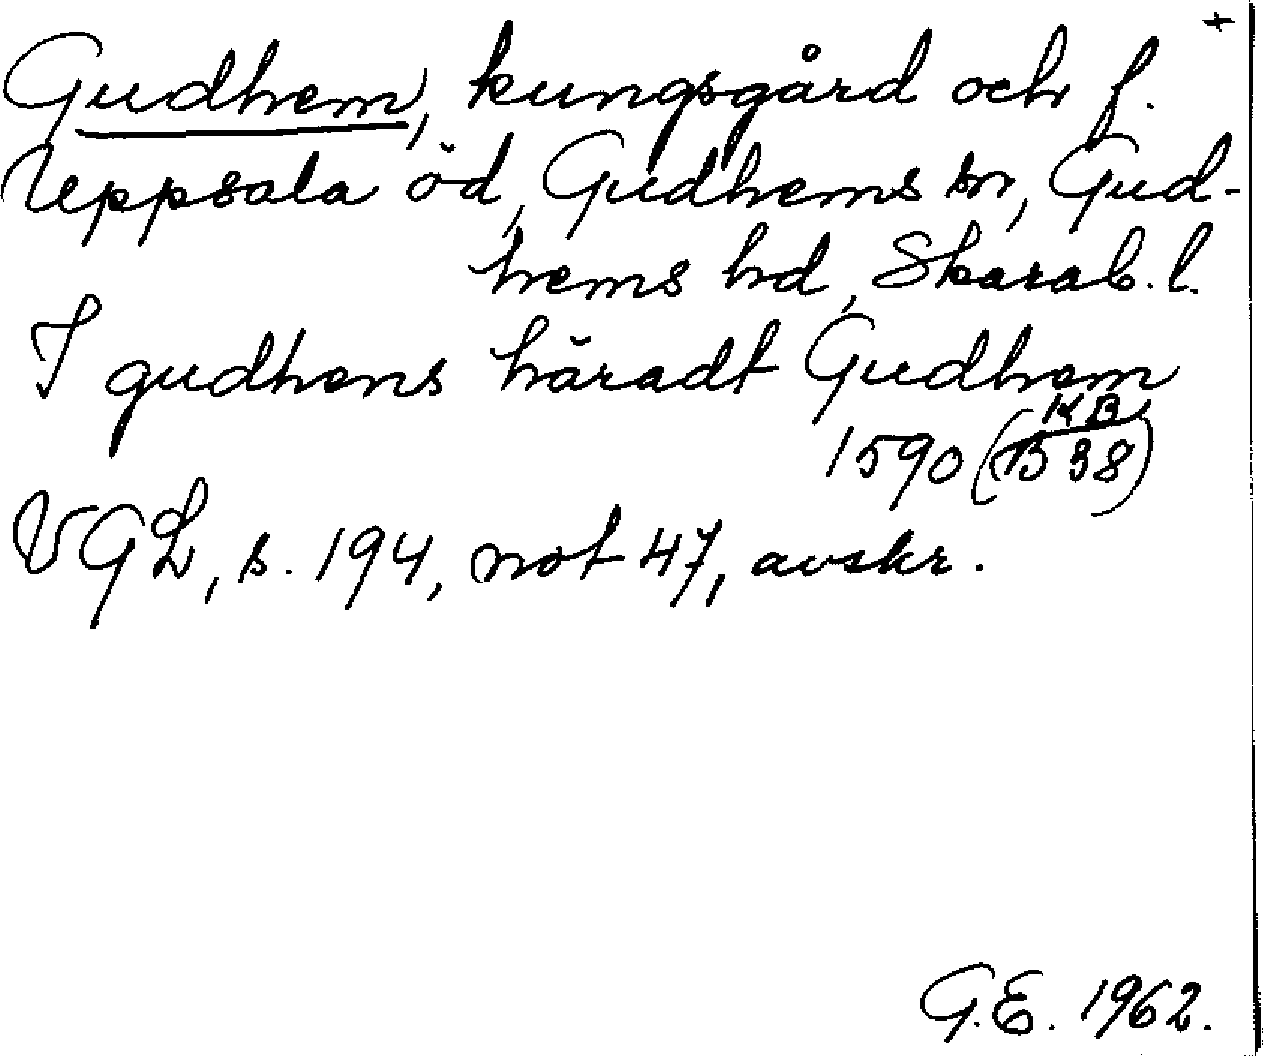 +
Gudhem, kungsgård och f.
Uppsala öd, Gudhems sn, Gud-
hems hd, Skarab. l.
I gudhens häradt Gudhem
KB
1590 (B 38)
VGL, s. 194, not 47, avskr.
G.E. 1962.